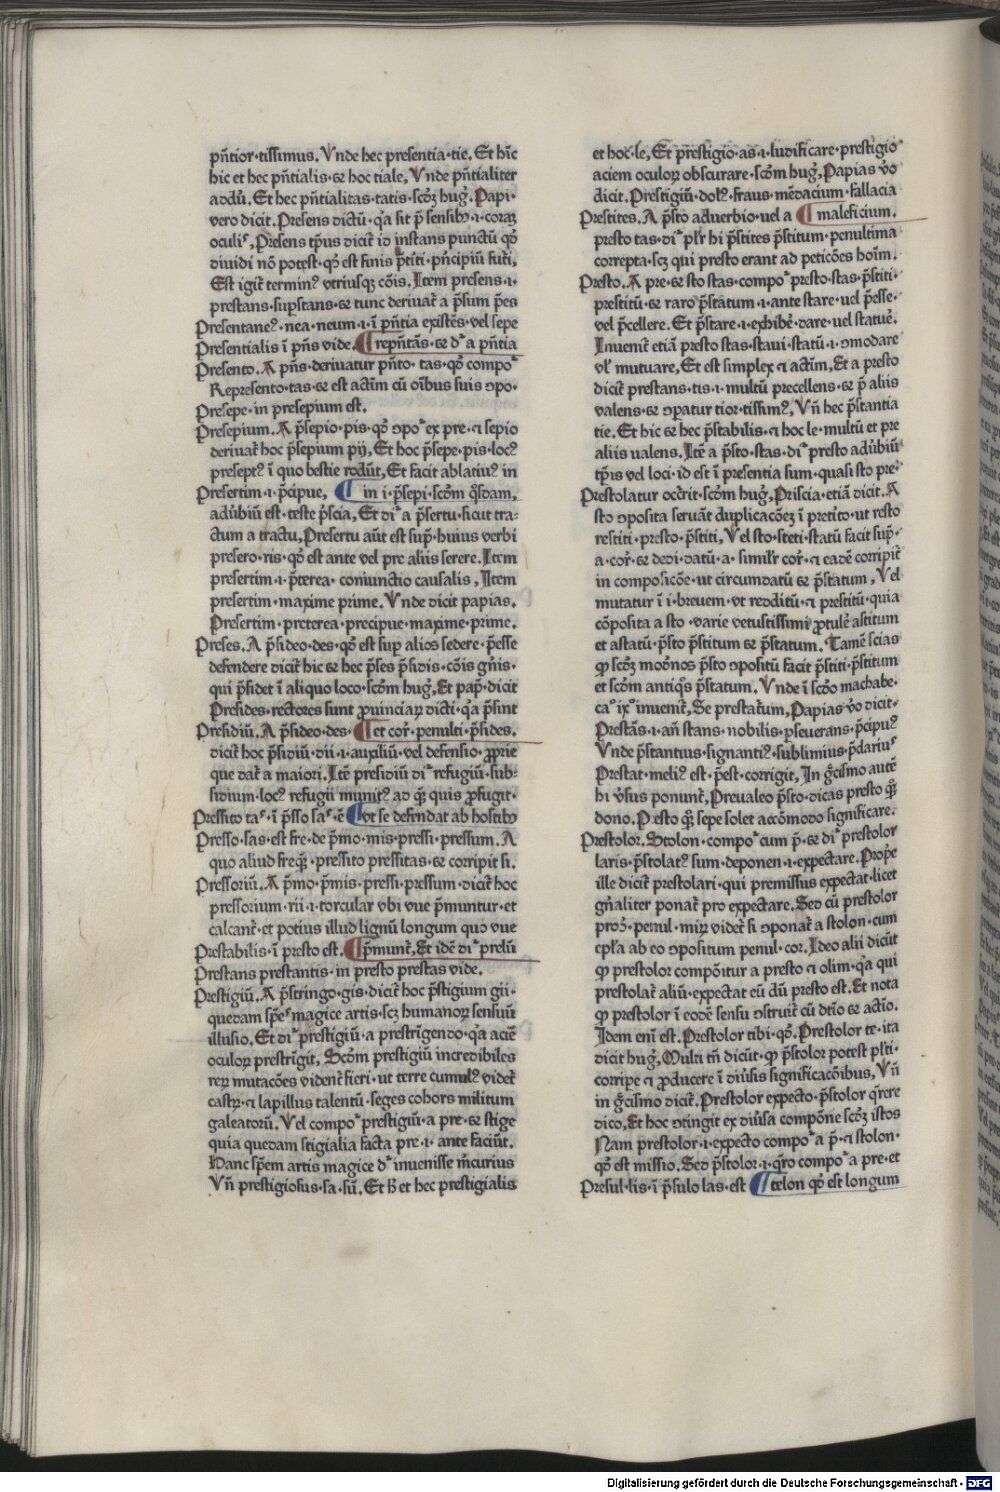 pn̄tior·tissimus. Vnde hec presentia·tie. Et hīc
hic et hec pn̄tialis·⁊ hoc tiale, Vnde pn̄tialiter
aduʼ. Et hec pn̄tialitas·tatis·scʒ hugʼ. Papi·
vero dicit. Presens dictū·qa sit p̄ sensibꝫ·i·coraꝫ
oculiˢ, Presens tp̄us dicit id instans punctū qđ
diuidi nō potest·qđ est finis p̄titi·pn̄cipiū futi.
Est igit termin⁹ vtriusqꝫ cōis. Item presens·i·
prestans·supstans·⁊ tunc deriuat a p̄sum p̄es
Presentane⁹·nea·neum·i·ī pn̄tia existēs·vel sepe
Presentialis ī pn̄s vide. ¶repn̄tās·⁊ dʳ a pn̄tia
Presento. A pn̄s·deriuatur pn̄to·tas·qđ compoʳ
Represento·tas·⁊ est actim cū oībus suis ɔpo·
Presepe·in presepium est.
Presepium. A p̄sepio·pis·qđ ɔpoʳ ex pre·⁊ sepio
deriuat hoc p̄sepium pij, Et hoc p̄sepe·pis·loc⁹
presept⁹ ī quo bestie rodūt, Et facit ablatiu⁹ in
Presertim·i·p̄cipue, ¶ in i·p̄sepi·scōm qs̄dam,
aduʼbiū est·teste p̄scia, Et diʳ a p̄sertu·sicut tra=
ctum a tractu, Presertu aūt est sup̄·huius verbi
presero·ris·qđ est ante vel pre aliis serere. Item
presertim·i·p̄terea·coniunctio causalis, Item
presertim·maxime prime. Vnde dicit papias.
Presertim·preterea·precipue·maxime·prime.
Preses. A p̄sideo·des·qđ est sup alios sedere·p̄esse
defendere dicit hic ⁊ hec p̄ses p̄sidis·cōis gn̄is·
qui p̄sidet ī aliquo loco·scōm hugʼ, Et pap̄·dicit
Presides·rectores sunt ꝓuinciaꝝ dicti·qa p̄sint
Presidiū. A p̄sideo·des· ¶et corʼ·penulti·p̄sides.
dicit hoc p̄sidiū·dii·i·auxiliū·vel defensio·ꝓprie
que dat a maiori. Itē presidiū diʳ refugiū·sub=
sidium·loc⁹ refugii munit⁹ ad qꝫ quis ꝓfugit·
Pressito taˢ·ī p̄sso saˢ·ē ¶vt se defendat ab hostibꝫ
Presso·sas·est fre·de p̄mo·mis·pressi·pressum. A
quo aliud freqꝫ·pressito pressitas·⁊ corripit si.
Pressoriū. A p̄mo·p̄mis·pressi·pressum·dicit hoc
pressorium·rii·i·torcular vbi vue p̄muntur·et
calcant·et potius illud lignū longum quo vue
Prestabilis·ī presto est. ¶p̄munt, Et idē diʳ prelū
Prestans prestantis·in presto prestas vide.
Prestigiū. A p̄stringo·gis·dicit hoc p̄stigium gii·
quedam spēˢ magice artis·scʒ humanoꝝ sensuū
illusio, Et diʳ prestigiū·a prestrīgendo·qa aciē
oculoꝝ prestrīgit, Scōm prestigiū incredibiles
reꝝ mutacōes vident fieri·ut terre cumul⁹ videt
castꝝ·⁊ lapillus talentū·seges cohors militum
galeatoꝝ. Vel compoʳ prestigiū·a pre·⁊ stige
quia quedam stigialia facta pre·i·ante faciūt.
Hanc spēm artis magice dʳ inuenisse m̄curius
Vn̄ prestigiosus·sa·sū. Et h̄ et hec prestigialis
et hoc·le, Et prestigio·as·i·ludificare·prestigio
aciem oculoꝝ obscurare·scōm hugʼ, Papias v̊o
dicit. Prestigiū·dol⁹·fraus·mēdacium·fallacia
Prestites. A p̄sto aduerbio·uel a ¶maleficium.
presto tas·diʳ plr̄ hi p̄stites p̄stitum·penultima
correpta·scʒ qui presto erant ad peticōes hoīm.
Presto. A pre·⁊ sto stas·compoʳ presto·stas·p̄stiti·
prestitū·⁊ raro p̄statum·i·ante stare·uel p̄esse·
vel p̄cellere. Et p̄stare·i·exhibē·dare·uel statue.
Inuenit etiā presto stas·staui·statū·i·ɔmodare
vl̓ mutuare, Et est simplex·⁊ actīm, Et a presto
dicit prestans·tis·i·multū precellens·⁊ p̄ aliis
valens·⁊ ɔparatur tior·tissim⁹, Vn̄ hec p̄stantia
tie. Et hic ⁊ hec p̄stabilis·⁊ hoc le·multū et pre
aliis ualens. Itē a p̄sto·stas·diʳ presto aduʼbiū
tp̄is vel loci·id est ī presentia sum·quasi sto pre·
Prestolatur occrit·scōm hugʼ, Priscia·etiā dicit. A
sto ɔposita seruāt duplicacōeʒ ī pretito·ut resto
restiti·presto·p̄stiti, Vel sto·steti·statū facit sup̄·
a·corʼ·⁊ dedi·datū·a·similr̄ corʼ·⁊ eadē corripit
in composicōe·ut circumdatū ⁊ p̄statum, Vel
mutatur ī i·breuem·vt redditū·⁊ prestitū·quia
cōposita a sto·varie vetustissimi ꝓtulē astitum
et astatū·p̄sto p̄stitum ⁊ p̄statum. Tamē scias
ꝙ scʒ modʼnos p̄sto ɔpositū facit p̄stiti·p̄stitum
et scōm antiqs̄ p̄statum. Vnde ī scōo machabe·
caᵒ ixᵒ inuenit, Se prestatum, Papias v̊o dicit·
Prestās·i·an̄ stans·nobilis·pseuerans·p̄cipu⁹
Vnde p̄stantius·signanti⁹·sublimius·p̄dariuˢ
Prestat·meli⁹ est·p̄est·corrigit, In ḡcismo autē
hi vʼsus ponunt, Preualeo p̄sto·dicas presto qꝫ
dono. Presto qꝫ sepe solet accōmodo significare.
Prestolor. Stolon·compoʳ cum p̄·⁊ diʳ prestolor
laris·p̄stolat⁹ sum·deponen·i·expectare. Prop̓e
ille dicit prestolari·qui premissus expectat·licet
gn̄aliter ponat pro expectare. Sed cū prestolor
prod̓·penul·miꝝ videt si ɔponat a stolon·cum
epl̄a ab eo ɔpositum penul·cor. Ideo alii dicūt
ꝙ prestolor compōitur a presto ⁊ olim·qa qui
prestolat aliū·expectat eū dū presto est. Et nota
ꝙ prestolor ī eodē sensu ɔstruit cū dtīo ⁊ actīo.
Idem enī est. Prestolor tibi·qđ. Prestolor te·ita
dicit hugʼ, Multi tn̄ dicūt·ꝙ p̄stolor potest pl̓ti·
corripe ⁊ ꝓducere ī diuʼsis significacōibus, Vn̄
in ḡcismo dicit. Prestolor expecto·p̄stolor qrere
dico, Et hoc ɔtingit ex diuʼsa compōne scʒ istos
Nam prestolor·i·expecto compoʳ a p̄·⁊ stolon·
qđ est missio. Sed p̄stolor·i·qro compoʳ a pre·et
Presul·lis·ī p̄sulo las·est ¶telon qđ est longum
Digitalisierung gefördert durch die Deutsche Forschungsgemeinschaft - DFG